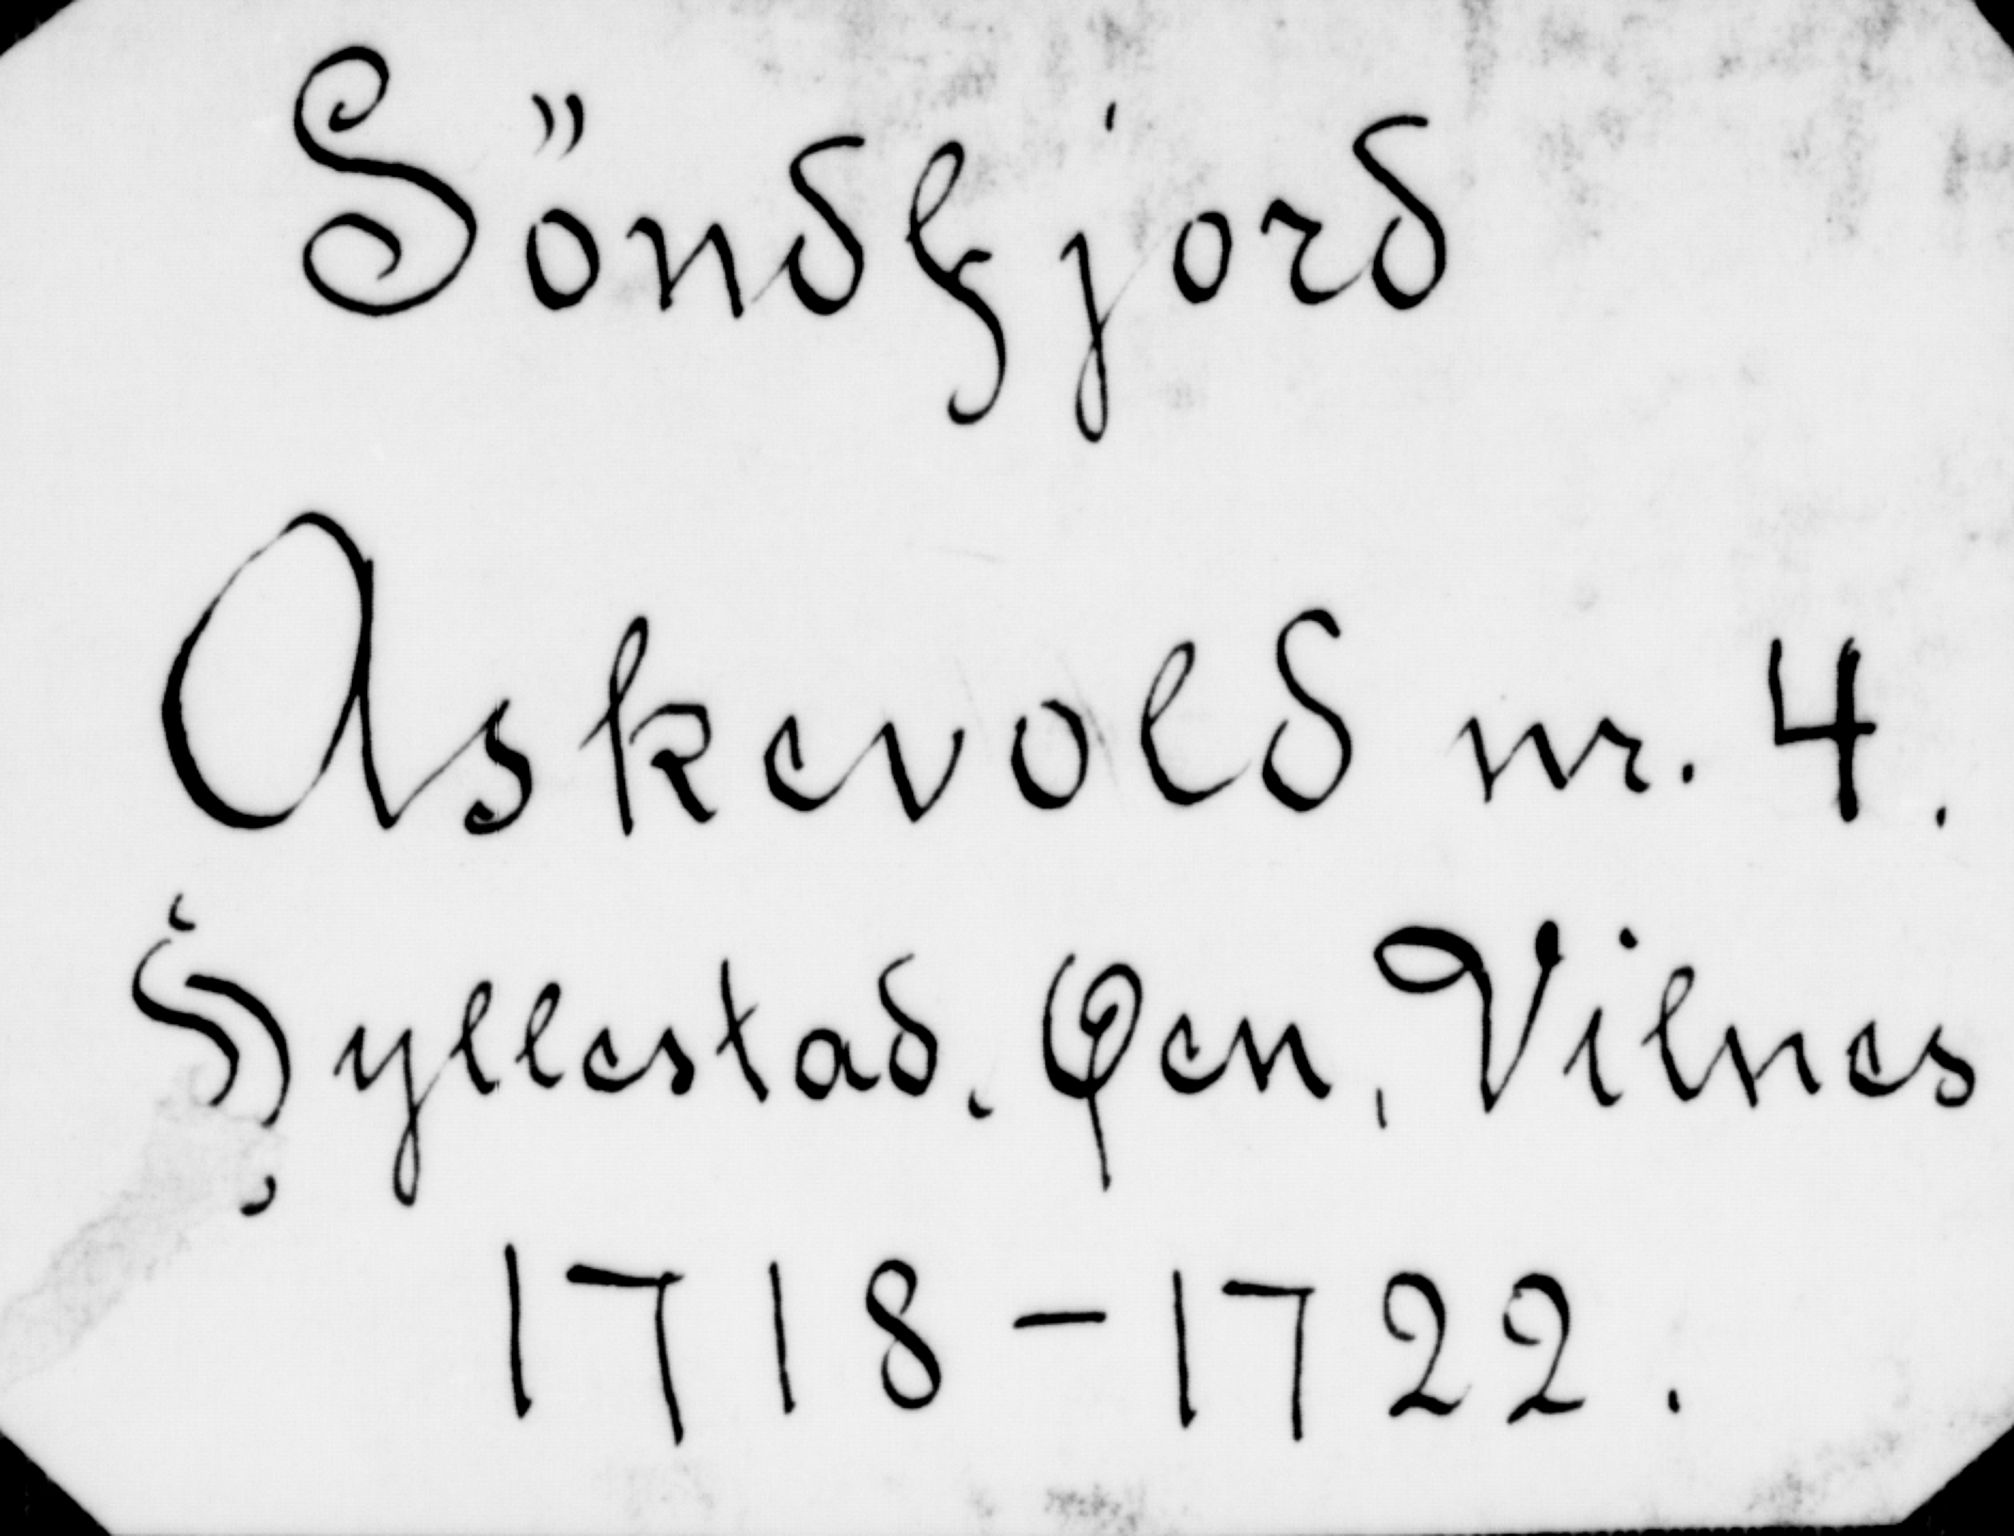 Söndfjord
Askevold nr. 4.
Hyllestad. Øen, Vilnes
1718-1722.